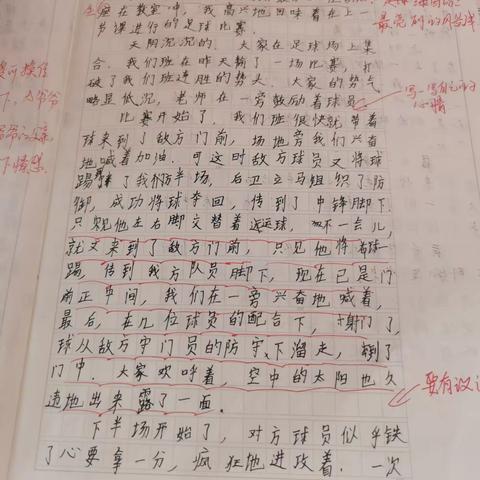 座在教室中，我高兴地回味着在上一
节课进行的足球比赛。
天阴沉沉的．大家在足球场上集
合．我们班在昨天输了一场比赛，打
破了我们班连胜的势头．大家的气
略显低沉，老师在一旁鼓励着球员
比赛开始了．我们班很快就带着
球来到了敌方门前，场地旁我们兴奋
地喊着加油．可这时敌方球员又将球
踢了我们后半场，后卫立马组织了防
御，成功将球夺回，传到了中锋脚下．
只见他左右脚交替着运球，不一会儿，
就又来到了敌方门前，只见他将球一
踢，传到我方队员脚下，现在已是门
前正中间，我们在一旁兴奋地喊着，
最后，在几位球员的配合下，射门了，
球从敌方守门员的防守下溜走，到了
门中．大家欢呼着，空中的太阳也久
违地出来露了一面．
下半场开始了，对方球员似乎铁
了心要拿一分，疯狂地进攻着．一次
写一写自己的
心情
要有议